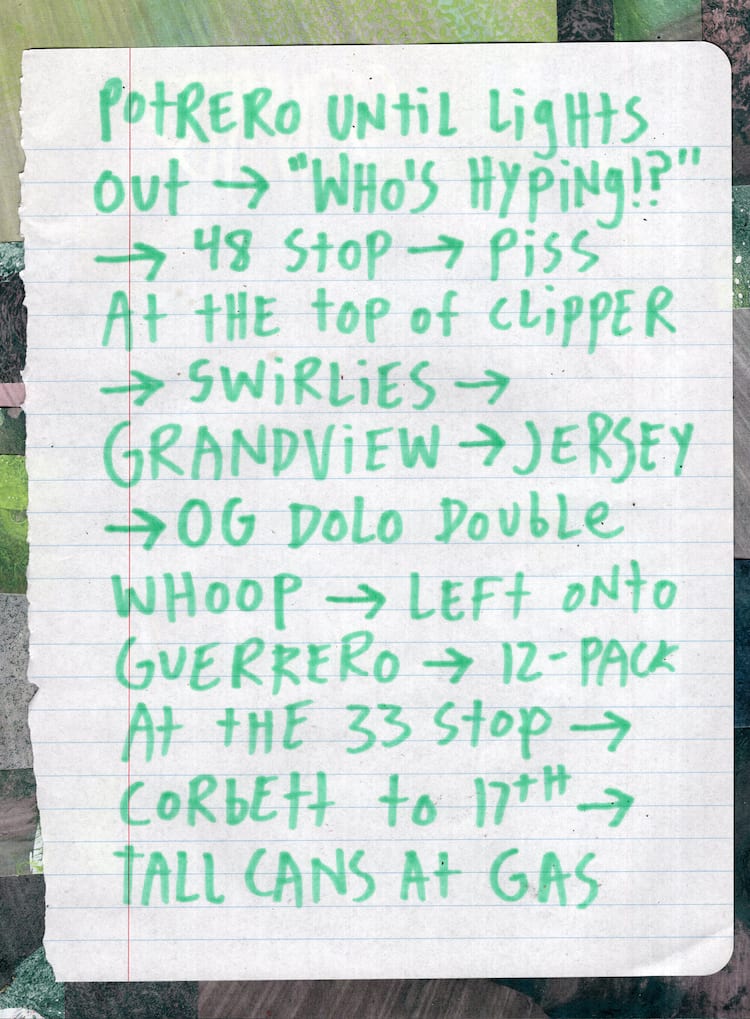 POTRERO UNTIL LIGHTS
OUT → "WHO'S HYPING!?"
→ 48 STOP → PISS
AT THE TOP OF CLIPPER
→ SWIRLIES →
GRANDVIEW → JERSEY
→ OG DOLO DOUBLE
WHOOP → LEFT ONTO
GUERRERO → 12-PACK
AT THE 33 STOP →
CORBETT TO 17TH →
TALL CANS AT GAS